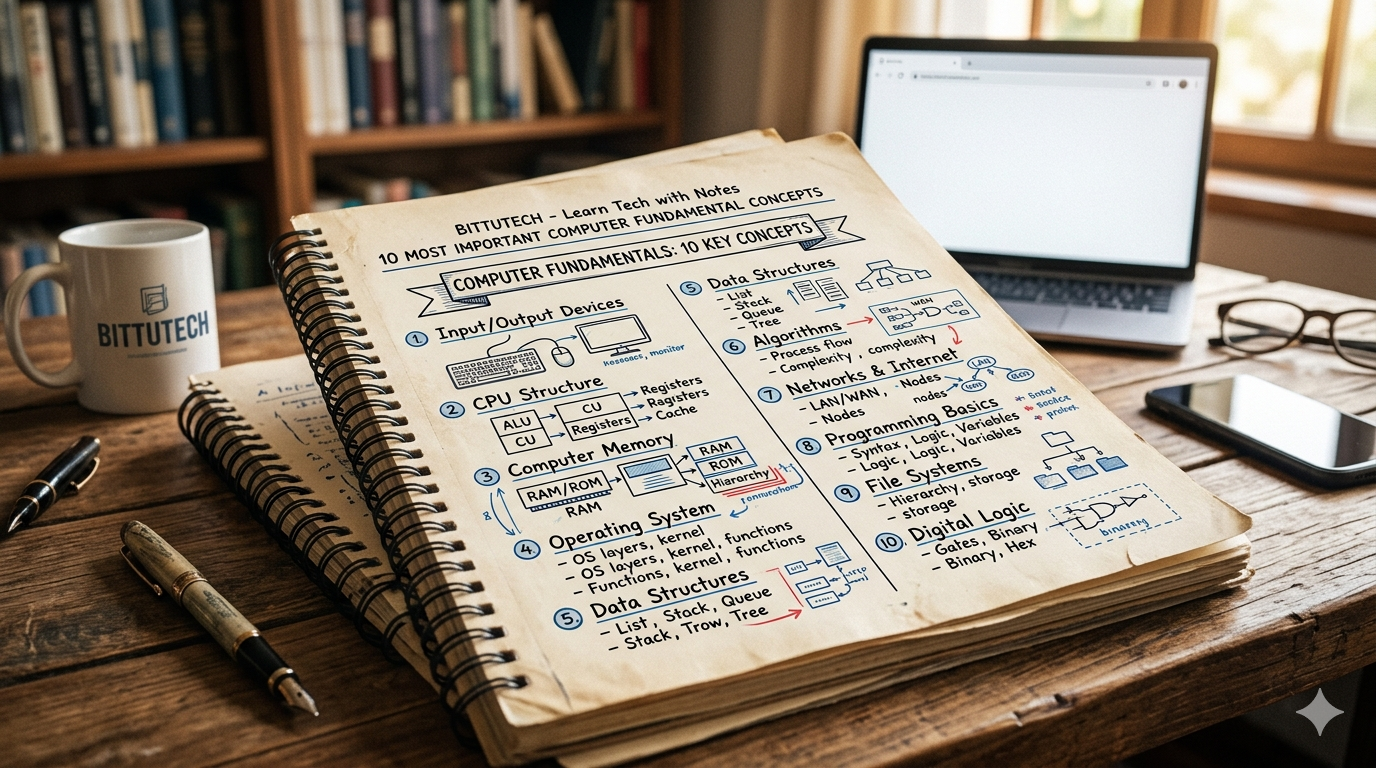 BITTUTECH - Learn Tech with Notes
10 MOST IMPORTANT COMPUTER FUNDAMENTAL CONCEPTS
COMPUTER FUNDAMENTALS: 10 KEY CONCEPTS
1 Input/Output Devices
monitor
2 CPU Structure
ALU
CU
CU
Registers
Registers
Ragisters
Cache
3 Computer Memory
RAM/ROM
RAM
RAM
ROM
Hierarchy
4. Operating System
- OS layers, kernel
- OS layers, kernel, functions
- Functions, kernel, functions
5. Data Structures
- List, Stack, Queue
- Stack, Trow, Tree
5 Data Structures
- List
- Stack
- Queue
- Tree
6 Algorithms
- Process flow
- Complexity, complexity
7 Networks & Internet
- LAN/WAN, . Nodes
- Nodes
nodes
LAN
8 Programming Basics
- Syntax, Logic, Variables
- Logic, Logic, Variables
9 File Systems
- Hierarchy, storage
- storage
10. Digital Logic
- Gates, Binary
- Binary, Hex
BITTUTECH